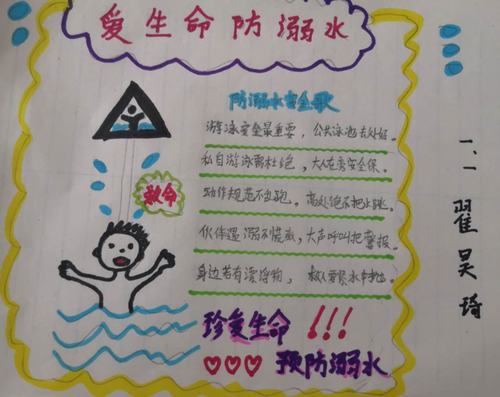 爱生命防溺水
防溺水安全歌
游泳安全最重要,公共泳池去处好。
私自游泳需杜绝,大人在旁安全保。
动作规范不出跑,高处绝不把水跳。
伙伴遇溺不慌张,大声呼叫把警报。
身边若有漂浮物,
救命
珍爱生命!!!
预防溺水
一、一 翟昊琦